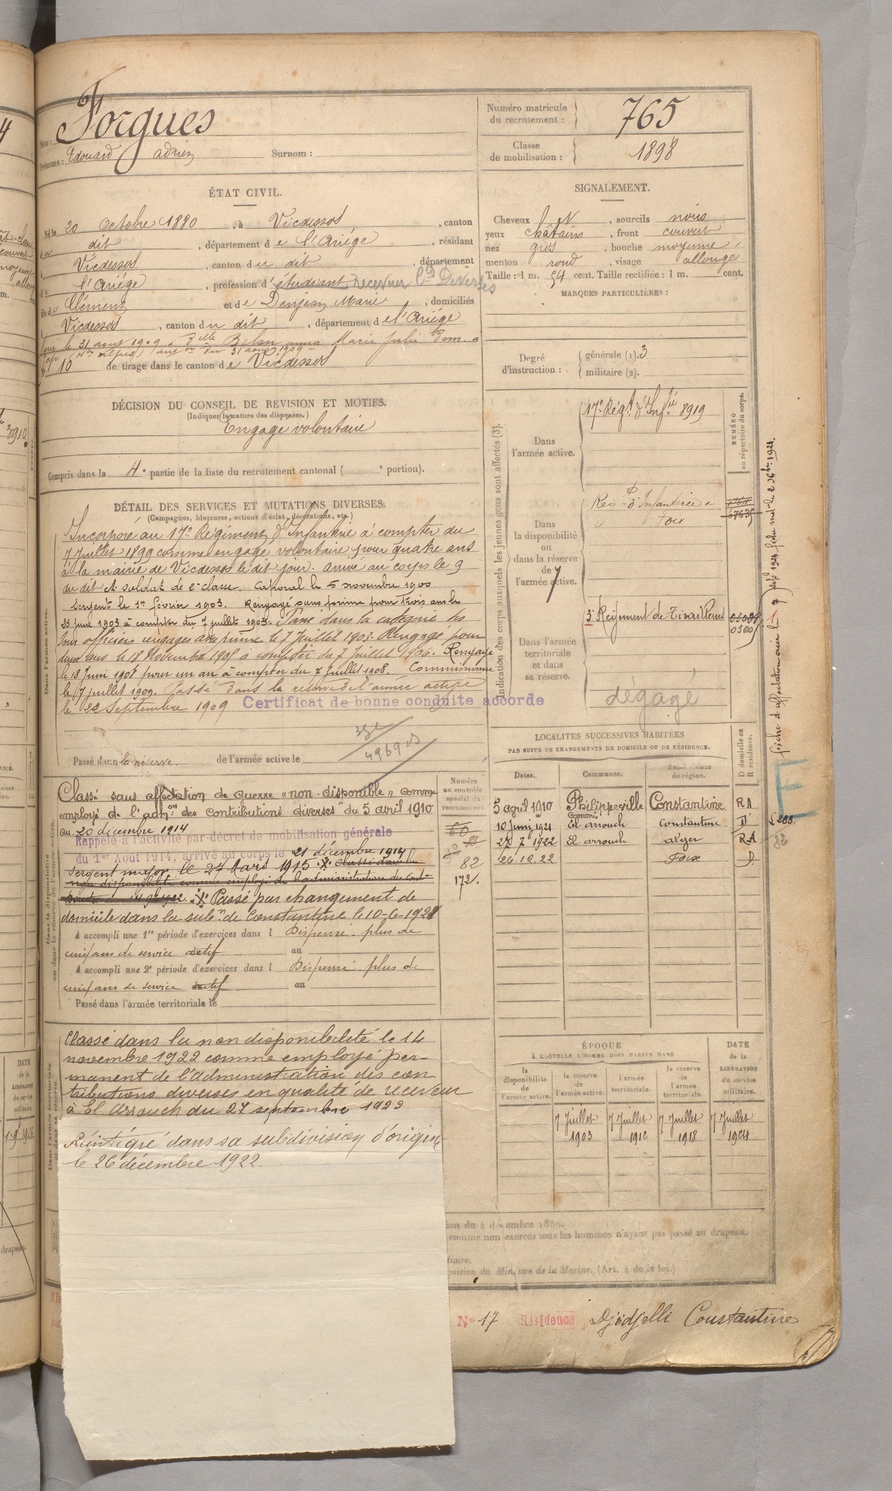 Nom : Forgues
Prénoms : Edouard Adrien Surnom :
Numéro matricule du recrutement : 765
Classe de mobilisation : 1898
ÉTAT CIVIL.
Né le 20 Octobre 1880, à Vicdessos, canton
dudit, département de l'Ariége, résidant
à Vicdessos, canton du dit, département
de l'Ariége, profession d'étudiant receveur Con Diverses
fils de Clément et de Denjean Marie, domiciliés
à Vicdessos, canton du dit, département de l'Ariége
N° 10 de tirage dans le canton de Vicdessos
SIGNALEMENT.
Cheveux N, sourcils noirs
yeux châtains, front couvert
nez gros, bouche moyenne
menton rond, visage allongé
Taille : 1 m. 54 cent. Taille rectifiée : 1 m. cent.
MARQUES PARTICULIÈRES :
Degré d'instruction : générale (1). 3
militaire (2).
DÉCISION DU CONSEIL DE REVISION ET MOTIFS.
(Indiquer la nature des dispenses.)
Engagé volontaire
Compris dans la 4e partie de la liste du recrutement cantonal ( e portion).
DÉTAIL DES SERVICES ET MUTATIONS DIVERSES.
(Campagnes, blessures, actions d'éclat, décorations, etc.)
Incorporé au 17e Régiment d'Infanterie à compter du
7 Juillet 1899 comme engagé volontaire pour quatre ans
à la mairie de Vicdessos le dit jour. arrivé au corps le 9
du dit et soldat de 2e classe. Caporal le 5 novembre 1900
Sergent le 1er février 1903. Rengagé sans prime pour trois ans le
juin 1903 à compter du 7 juillet 1903. Passé dans la catégorie des
sous officiers rengagés avec prime le 7 Juillet 1903. Rengagé pour
deux ans le 18 Novembre 1905 à compter du 7 Juillet 1906. Rengagé
le 18 Juin 1908 pour un an à compter du 7 Juillet 1908. Commissionné
le 7 juillet 1909. Passé dans la réserve de l'armée active
le 22 Septembre 1909 Certificat de bonne conduite accordé
Passé dans la réserve de l'armée active le
Classé sans affectation de guerre "non disponible" comme
employé de l'admon des contributions diverses du 5 avril 1910
au 20 décembre 1914
Rappelé à l'activité par décret de mobilisation générale
du 1er Août 1914, arrivé au corps le 21 décembre 1914
Sergent major le 24 Mars 1915
Passé par changement de
domicile dans la subon de Constantine le 10-6-1921
A accompli une 1re période d'exercices dans l Dispensé. plus de
cinq ans de service actif au
A accompli une 2e période d'exercices dans l Dispensé. plus de
cinq ans de service actif au
Passé dans l'armée territoriale le
Classé dans la non disponibilité le 14
novembre 1922 comme employé per-
manent de l'administration des con
tributions diverses en qualité de receveur
à El Arrouch du 27 septembre 1922
Réintégré dans sa subdivision d'origine
le 26 décembre 1922.
Numéro au contrôle spécial du recrutement
60
82
172.
Indication des corps auxquels les jeunes gens sont affectés (3).
NUMÉRO au répertoire du corps.
Dans l'armée active.
17e Régt d'Infie 8919
Dans la disponibilité ou dans la réserve de l'armée active.
Foix
Dans l'armée territoriale et dans sa réserve.
3e Régiment de Tirailleurs
dégagé
LOCALITÉS SUCCESSIVES HABITÉES
PAR SUITE DE CHANGEMENTS DE DOMICILE OU DE RÉSIDENCE.
Dates. Communes. Subdivisions de région. D domicile ou R résidence.
5 avril 1910 Philippeville Constantine RA
10 juin 1921 El arrouch Constantine D
27 7 1922 El arrouch alger RA
26.12.22 Foix D
ÉPOQUE
À LAQUELLE L'HOMME DOIT PASSER DANS
la disponibilité de l'armée active.
la réserve de l'armée active.
l'armée territoriale.
la réserve de l'armée territoriale.
DATE de la LIBÉRATION du service militaire.
7 Juillet 1903
7 Juillet 1910
7 Juillet 1918
7 Juillet 1924
comme non exercés tous les hommes n'ayant pas passé au drapeau.
Ministre de la Marine. (Art. 4 de la loi.)
N° 17 Résidence Djidjelli Constantine